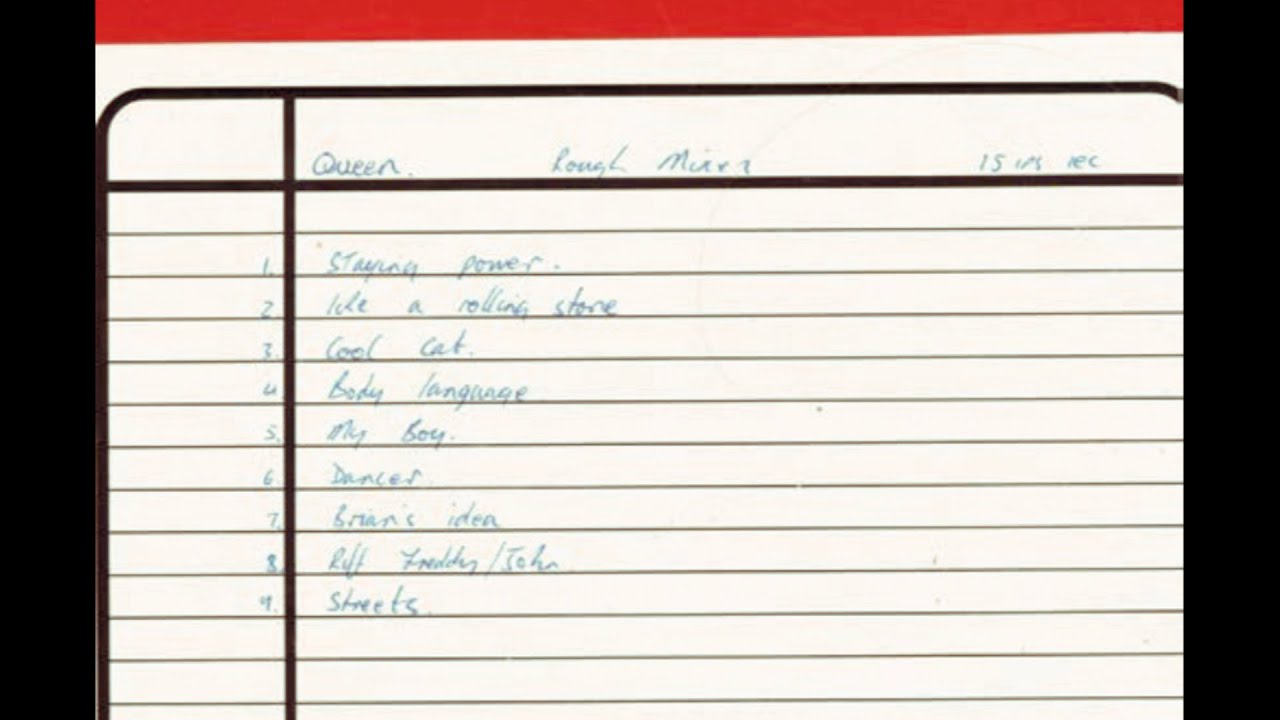 Queen. Rough Mixes 15 ips rec
1. Staying power.
2 like a rolling stone
3. Cool cat.
4 Body language
5. My Boy.
6 Dancer.
7. Brian's idea
8. Riff Freddy/John
9. Streets.